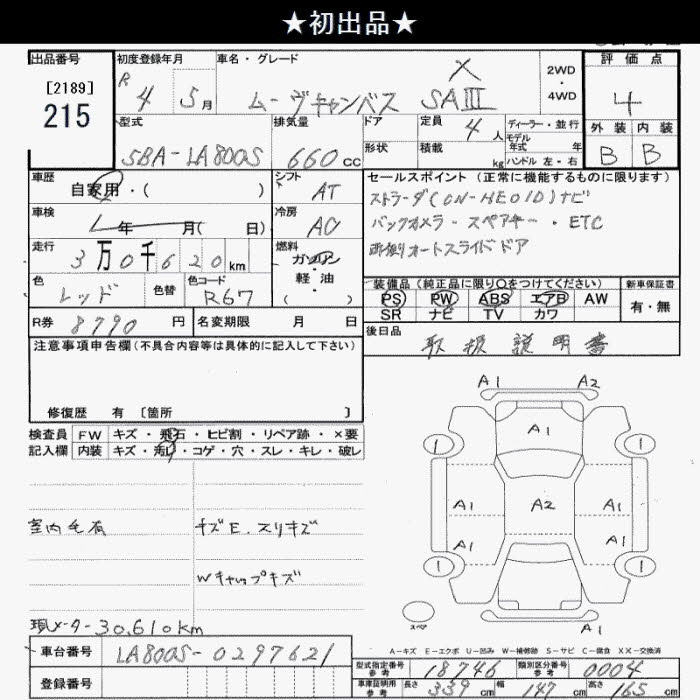 ★初出品★
出品番号 初度登録年月 車名・グレード 評価点
[2189]
215
R 4 年 5月 ムーヴキャンバス X SAⅢ 2WD・4WD 4
型式 排気量 ドア 定員 4人 ディーラー・並行 外装 内装
5BA-LA800S 660cc 形状 積載 kg モデル年式 年 ハンドル 左・右 B B
車歴 自家用・( ) シフト AT セールスポイント (正常に機能するものに限ります)
車検 年 月( 日) 冷房 AC ストラーダ(CN-HE01D)ナビ
バックカメラ・スペアキー・ETC
走行 3万0千620km 燃料 ガソリン 軽・油 ( ) 両側オートスライドドア
色 レッド 色替 色コード R67 装備品 (純正品に限り○をつけてください) 新車保証書
PS PW ABS エアB AW 有・無
SR ナビ TV カワ
R券 8790円 名変期限 月 日 後日品 取扱説明書
注意事項申告欄(不具合内容等は具体的に記入して下さい)
修復歴 有 [箇所 ]
検査員 FW キズ・飛石・ヒビ割・リペア跡・×要
記入欄 内装 キズ・汚れ・コゲ・穴・スレ・キレ・破レ
A1 A2
A1
1 1
A1 A2 A1
A1 A1
1 1
スペア A1
室内毛有 キズE.スリキズ
Wキャップキズ
現メーター30,610km
A-キズ E-エクボ U-凹み W-補修跡 S-サビ C-腐食 XX-交換済
車台番号 LA800S-0297621
型式指定番号 参考 18746 類別区分番号 参考 0004
登録番号 車庫証明用 参考 長さ 339cm 幅 147cm 高さ 165cm